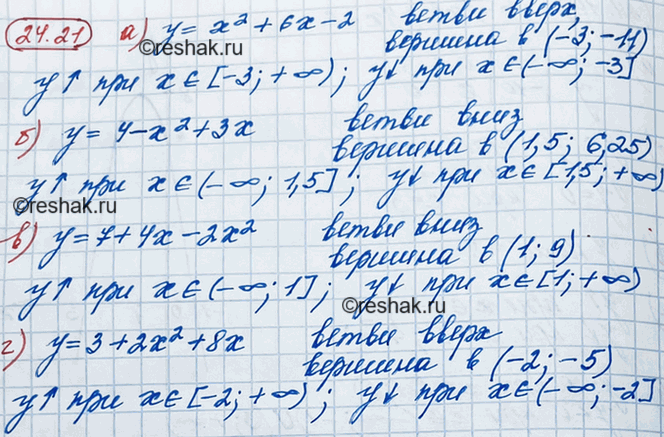 24.21 а) y = x² + 6x - 2 ветви вверх,
©reshak.ru
вершина в (-3; -11)
y↑ при x ∈ [-3; +∞); y↓ при x ∈ (-∞; -3]
б) y = 4 - x² + 3x ветви вниз
вершина в (1,5; 6,25)
y↑ при x ∈ (-∞; 1,5]; y↓ при x ∈ [1,5; +∞)
©reshak.ru
©reshak.ru
в) y = 7 + 4x - 2x² ветви вниз
вершина в (1; 9)
y↑ при x ∈ (-∞; 1]; y↓ при x ∈ [1; +∞)
©reshak.ru
г) y = 3 + 2x² + 8x ветви вверх
вершина в (-2; -5)
y↑ при x ∈ [-2; +∞); y↓ при x ∈ (-∞; -2]